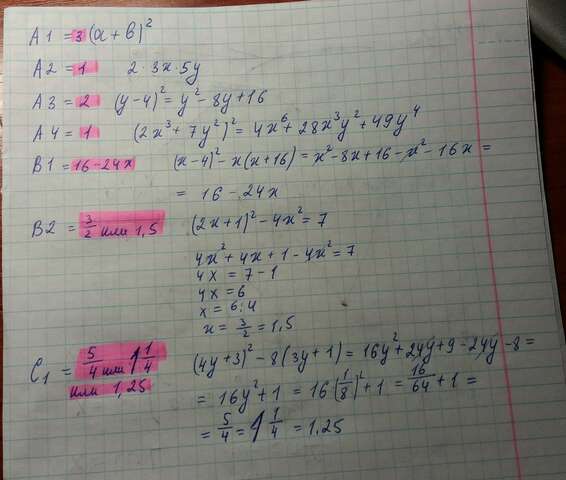 A1 = 3 (a + b)²
A2 = 1 2 · 3x · 5y
A3 = 2 (y - 4)² = y² - 8y + 16
A4 = 1 (2x³ + 7y²)² = 4x⁶ + 28x³y² + 49y⁴
B1 = 16 - 24x (x - 4)² - x(x + 16) = x² - 8x + 16 - x² - 16x =
= 16 - 24x
B2 = 3/2 или 1,5 (2x + 1)² - 4x² = 7
4x² + 4x + 1 - 4x² = 7
4x = 7 - 1
4x = 6
x = 6 : 4
x = 3/2 = 1,5
C1 = 5/4 или 1 1/4 или 1,25 (4y + 3)² - 8(3y + 1) = 16y² + 24y + 9 - 24y - 8 =
= 16y² + 1 = 16(1/8)² + 1 = 16/64 + 1 =
= 5/4 = 1 1/4 = 1,25